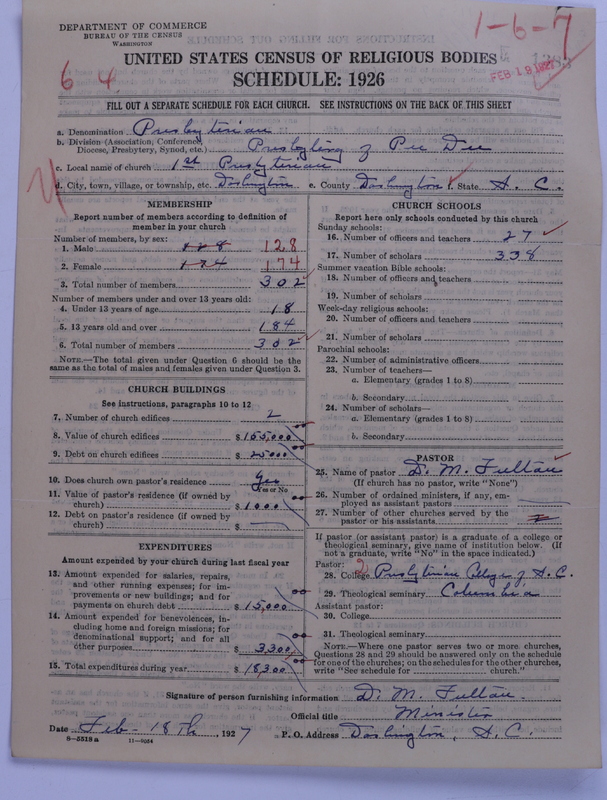 DEPARTMENT OF COMMERCE
BUREAU OF THE CENSUS
WASHINGTON
1-6-7
FEB 19 1927
64
UNITED STATES CENSUS OF RELIGIOUS BODIES
SCHEDULE: 1926
FILL OUT A SEPARATE SCHEDULE FOR EACH CHURCH. SEE INSTRUCTIONS ON THE BACK OF THIS SHEET
a. Denomination Presbyterian
b. Division (Association, Conference, Diocese, Presbytery, Synod, etc.) Presbytery of Pee Dee
c. Local name of church 1st Presbyterian
d. City, town, village, or township, etc. Darlington e. County Darlington f. State S. C.
MEMBERSHIP
Report number of members according to definition of
member in your church
Number of members, by sex:
1. Male 128 128
2. Female 174 174
3. Total number of members 302
Number of members under and over 13 years old:
4. Under 13 years of age 18
5. 13 years old and over 184
6. Total number of members 302
NOTE.—The total given under Question 6 should be
same as the total of males and females given under Question 3.
CHURCH BUILDINGS
See instructions, paragraphs 10 to 12
7. Number of church edifices 2
8. Value of church edifices $ 165,000
9. Debt on church edifices $ 25000
10. Does church own pastor's residence Yes
Yes or No
11. Value of pastor's residence (if owned by
church) $ 1000
12. Debt on pastor's residence (if owned by
church) $
EXPENDITURES
Amount expended by your church during last fiscal year
13. Amount expended for salaries, repairs,
and other running expenses; for im-
provements or new buildings; and for
payments on church debt $ 15,000
14. Amount expended for benevolences, in-
cluding home and foreign missions; for
denominational support; and for all
other purposes $ 3300
15. Total expenditures during year $ 18,300
CHURCH SCHOOLS
Report here only schools conducted by this church
Sunday schools:
16. Number of officers and teachers 27
17. Number of scholars 338
Summer vacation Bible schools:
18. Number of officers and teachers
19. Number of scholars
Week-day religious schools:
20. Number of officers and teachers
21. Number of scholars
Parochial schools:
22. Number of administrative officers
23. Number of teachers—
a. Elementary (grades 1 to 8)
b. Secondary
24. Number of scholars—
a. Elementary (grades 1 to 8)
b. Secondary
PASTOR
25. Name of pastor D. M. Fulton
(If church has no pastor, write "None")
26. Number of ordained ministers, if any, em-
ployed as assistant pastors
27. Number of other churches served by the
pastor or his assistants
If pastor (or assistant pastor) is a graduate of a college or
theological seminary, give name of institution below. (If
not a graduate, write "No" in the space indicated.)
Pastor: 2
28. College Presbyterian College of S. C.
29. Theological seminary Columbia
Assistant pastor:
30. College
31. Theological seminary
NOTE.—Where one pastor serves two or more churches,
Questions 28 and 29 should be answered only on the schedule
for one of the churches; on the schedules for the other churches,
write "See schedule for church."
Signature of person furnishing information D. M. Fulton
Official title Minister
Date Feb - 18th, 1927 P. O. Address Darlington, S. C.
8—5518a 11—9054